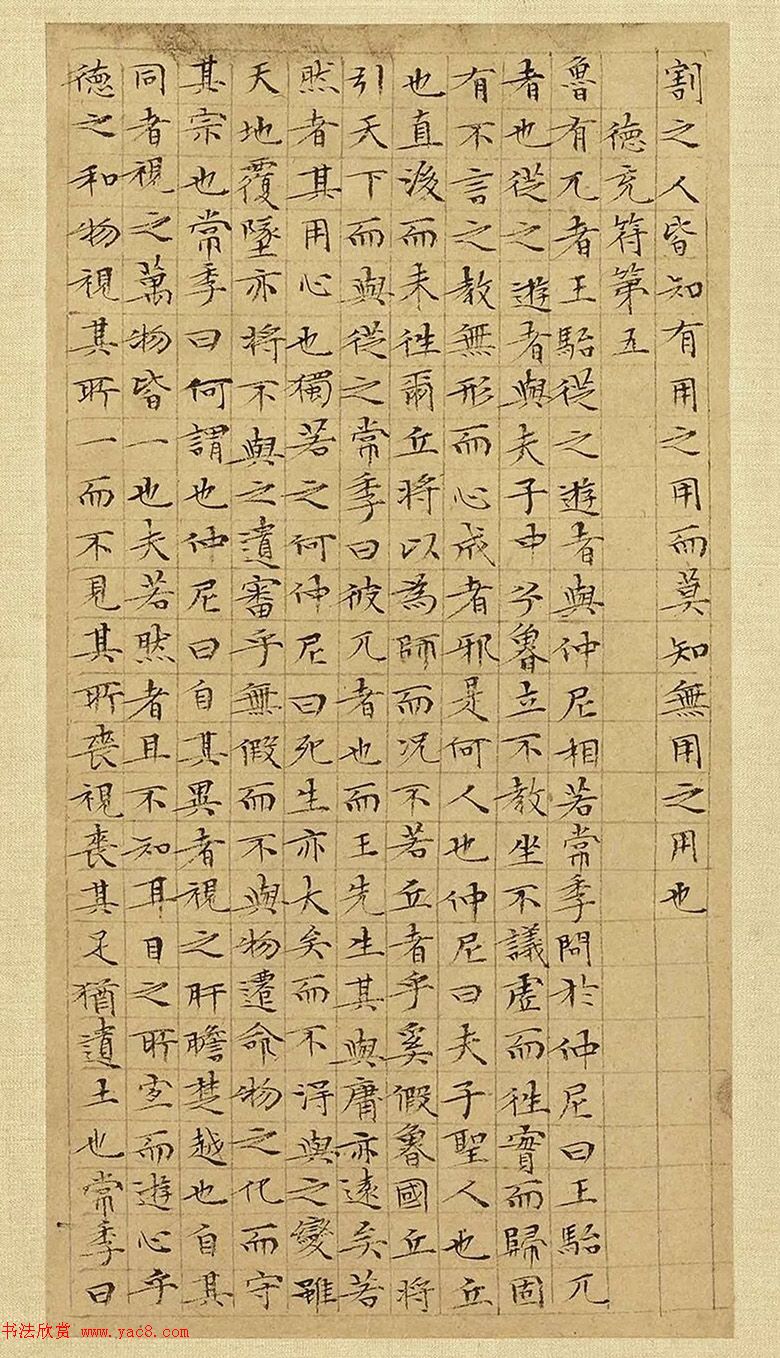 割之人皆知有用之用而莫知無用之用也
德充符第五
魯有兀者王駘從之遊者與仲尼相若常季問於仲尼曰王駘兀
者也從之遊者與夫子中分魯立不教坐不議虛而往實而歸固
有不言之教無形而心成者邪是何人也仲尼曰夫子聖人也丘
也直後而未往爾丘將以為師而況不若丘者乎奚假魯國丘將
引天下而與從之常季曰彼兀者也而王先生其與庸亦遠矣若
然者其用心也獨若之何仲尼曰死生亦大矣而不得與之變雖
天地覆墜亦將不與之遺審乎無假而不與物遷命物之化而守
其宗也常季曰何謂也仲尼曰自其異者視之肝膽楚越也自其
同者視之萬物皆一也夫若然者且不知耳目之所宜而遊心乎
德之和物視其所一而不見其所喪視喪其足猶遺土也常季曰
书法欣赏 www.yac8.com